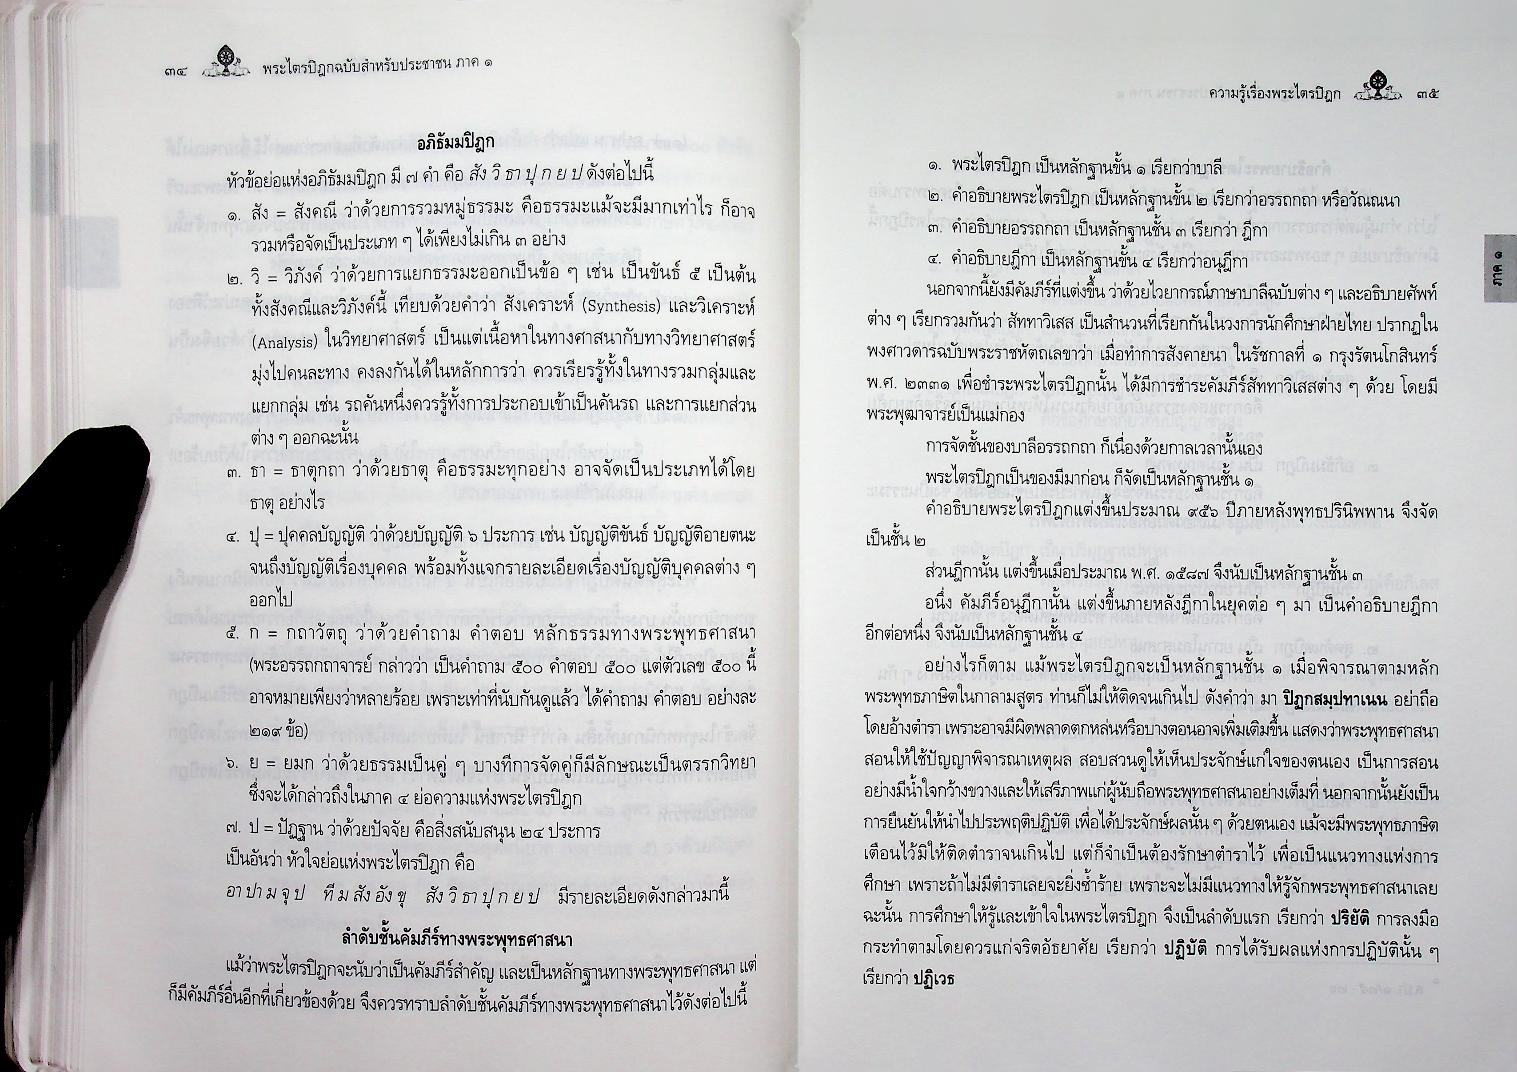 ๓๔ พระไตรปิฎกฉบับสำหรับประชาชน ภาค ๑
อภิธัมมปิฎก
หัวข้อย่อแห่งอภิธัมมปิฎก มี ๗ คำ คือ สัง วิ ธา ปุ ก ย ป ดังต่อไปนี้
๑. สัง = สังคณี ว่าด้วยการรวมหมู่ธรรมะ คือธรรมะแม้จะมีมากเท่าไร ก็อาจ
รวมหรือจัดเป็นประเภท ๆ ได้เพียงไม่เกิน ๓ อย่าง
๒. วิ = วิภังค์ ว่าด้วยการแยกธรรมะออกเป็นข้อ ๆ เช่น เป็นขันธ์ ๕ เป็นต้น
ทั้งสังคณีและวิภังค์นี้ เทียบด้วยคำว่า สังเคราะห์ (Synthesis) และวิเคราะห์
(Analysis) ในวิทยาศาสตร์ เป็นแต่เนื้อหาในทางศาสนากับทางวิทยาศาสตร์
มุ่งไปคนละทาง คงลงกันได้ในหลักการว่า ควรเรียรรู้ทั้งในทางรวมกลุ่มและ
แยกกลุ่ม เช่น รถคันหนึ่งควรรู้ทั้งการประกอบเข้าเป็นคันรถ และการแยกส่วน
ต่าง ๆ ออกฉะนั้น
๓. ธา = ธาตุกถา ว่าด้วยธาตุ คือธรรมะทุกอย่าง อาจจัดเป็นประเภทได้โดย
ธาตุ อย่างไร
๔. ปุ = ปุคคลบัญญัติ ว่าด้วยบัญญัติ ๖ ประการ เช่น บัญญัติขันธ์ บัญญัติอายตนะ
จนถึงบัญญัติเรื่องบุคคล พร้อมทั้งแจกรายละเอียดเรื่องบัญญัติบุคคลต่าง ๆ
ออกไป
๕. ก = กถาวัตถุ ว่าด้วยคำถาม คำตอบ หลักธรรมทางพระพุทธศาสนา
(พระอรรถกถาจารย์ กล่าวว่า เป็นคำถาม ๕๐๐ คำตอบ ๕๐๐ แต่ตัวเลข ๕๐๐ นี้
อาจหมายเพียงว่าหลายร้อย เพราะเท่าที่นับกันดูแล้ว ได้คำถาม คำตอบ อย่างละ
๒๑๙ ข้อ)
๖. ย = ยมก ว่าด้วยธรรมเป็นคู่ ๆ บางทีการจัดคู่ก็มีลักษณะเป็นตรรกวิทยา
ซึ่งจะได้กล่าวถึงในภาค ๔ ย่อความแห่งพระไตรปิฎก
๗. ป = ปัฏฐาน ว่าด้วยปัจจัย คือสิ่งสนับสนุน ๒๔ ประการ
เป็นอันว่า หัวใจย่อแห่งพระไตรปิฎก คือ
อา ปา ม จุ ป ที ม สัง อัง ขุ สัง วิ ธา ปุ ก ย ป มีรายละเอียดดังกล่าวมานี้
ลำดับชั้นคัมภีร์ทางพระพุทธศาสนา
แม้ว่าพระไตรปิฎกจะนับว่าเป็นคัมภีร์สำคัญ และเป็นหลักฐานทางพระพุทธศาสนา แต่
ก็มีคัมภีร์อื่นอีกที่เกี่ยวข้องด้วย จึงควรทราบลำดับชั้นคัมภีร์ทางพระพุทธศาสนาไว้ดังต่อไปนี้
ความรู้เรื่องพระไตรปิฎก ๓๕
๑. พระไตรปิฎก เป็นหลักฐานชั้น ๑ เรียกว่าบาลี
๒. คำอธิบายพระไตรปิฎก เป็นหลักฐานชั้น ๒ เรียกว่าอรรถกถา หรือวัณณนา
๓. คำอธิบายอรรถกถา เป็นหลักฐานชั้น ๓ เรียกว่า ฎีกา
๔. คำอธิบายฎีกา เป็นหลักฐานชั้น ๔ เรียกว่าอนุฎีกา
นอกจากนี้ยังมีคัมภีร์ที่แต่งขึ้น ว่าด้วยไวยากรณ์ภาษาบาลีฉบับต่าง ๆ และอธิบายศัพท์
ต่าง ๆ เรียกรวมกันว่า สัททาวิเสส เป็นสำนวนที่เรียกกันในวงการนักศึกษาฝ่ายไทย ปรากฏใน
พงศาวดารฉบับพระราชหัตถเลขาว่า เมื่อทำการสังคายนา ในรัชกาลที่ ๑ กรุงรัตนโกสินทร์
พ.ศ. ๒๓๓๑ เพื่อชำระพระไตรปิฎกนั้น ได้มีการชำระคัมภีร์สัททาวิเสสต่าง ๆ ด้วย โดยมี
พระพุฒาจารย์เป็นแม่กอง
การจัดชั้นของบาลีอรรถกถา ก็เนื่องด้วยกาลเวลานั้นเอง
พระไตรปิฎกเป็นของมีมาก่อน ก็จัดเป็นหลักฐานชั้น ๑
คำอธิบายพระไตรปิฎกแต่งขึ้นประมาณ ๙๕๖ ปีภายหลังพุทธปรินิพพาน จึงจัด
เป็นชั้น ๒
ส่วนฎีกานั้น แต่งขึ้นเมื่อประมาณ พ.ศ. ๑๕๘๗ จึงนับเป็นหลักฐานชั้น ๓
อนึ่ง คัมภีร์อนุฎีกานั้น แต่งขึ้นภายหลังฎีกาในยุคต่อ ๆ มา เป็นคำอธิบายฎีกา
อีกต่อหนึ่ง จึงนับเป็นหลักฐานชั้น ๔
อย่างไรก็ตาม แม้พระไตรปิฎกจะเป็นหลักฐานชั้น ๑ เมื่อพิจารณาตามหลัก
พระพุทธภาษิตในกาลามสูตร ท่านก็ไม่ให้ติดจนเกินไป ดังคำว่า มา ปิฏกสมฺปทาเนน อย่าถือ
โดยอ้างตำรา เพราะอาจมีผิดพลาดตกหล่นหรือบางตอนอาจเพิ่มเติมขึ้น แสดงว่าพระพุทธศาสนา
สอนให้ใช้ปัญญาพิจารณาเหตุผล สอบสวนดูให้เห็นประจักษ์แก่ใจของตนเอง เป็นการสอน
อย่างมีน้ำใจกว้างขวางและให้เสรีภาพแก่ผู้นับถือพระพุทธศาสนาอย่างเต็มที่ นอกจากนั้นยังเป็น
การยืนยันให้นำไปประพฤติปฏิบัติ เพื่อได้ประจักษ์ผลนั้น ๆ ด้วยตนเอง แม้จะมีพระพุทธภาษิต
เตือนไว้มิให้ติดตำราจนเกินไป แต่ก็จำเป็นต้องรักษาตำราไว้ เพื่อเป็นแนวทางแห่งการ
ศึกษา เพราะถ้าไม่มีตำราเลยจะยิ่งซ้ำร้าย เพราะจะไม่มีแนวทางให้รู้จักพระพุทธศาสนาเลย
ฉะนั้น การศึกษาให้รู้และเข้าใจในพระไตรปิฎก จึงเป็นลำดับแรก เรียกว่า ปริยัติ การลงมือ
กระทำตามโดยควรแก่จริตอัธยาศัย เรียกว่า ปฏิบัติ การได้รับผลแห่งการปฏิบัตินั้น ๆ
เรียกว่า ปฏิเวธ
ภาค ๑